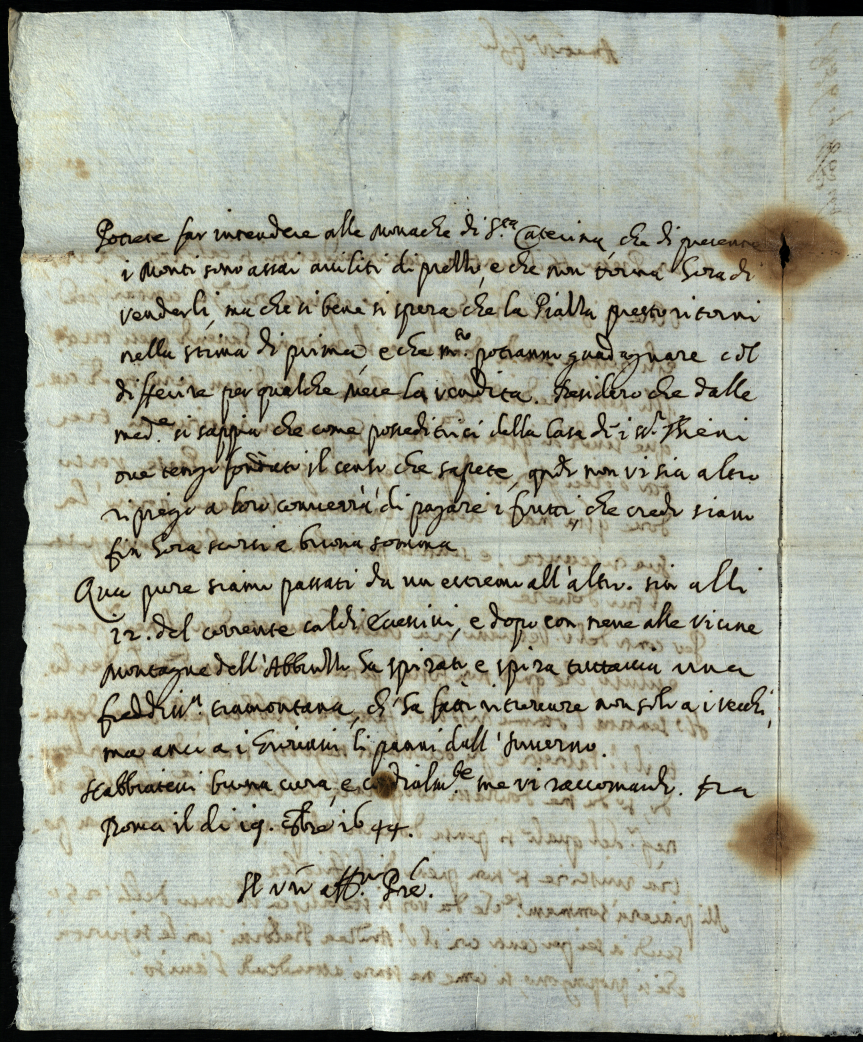 Potrete far intendere alle Monache di S.ta Caterina, che di presente
i Monti sono assai aviliti di prezzo, e che non torna hora di
venderli, ma che si bene si spera che la Piazza presto ritorni
nella stima di prima, e che m.to potranno guadagnare col
differire per qualche mese la vendita. Desidero che dalle
med.e si sappia che come posseditrici della Casa di i SS.ri
ove tengo fondato il censo che sapete, qndo non vi sia altro
ripiego a loro converrà di pagare i frutti che credo siano
fin hora scorsi e buona somma
Qua pure siamo passati da un estremo all'altro. sin alli
12. del corrente caldi eccessivi, e dopo con neve alle vicine
Montagne dell'Abbruzzo ha spirato e spira tuttavia una
freddiss.a tramontana, ch'ha fatto ritrovare non solo a i vecchi,
ma anco a i Giovani li panni dell'Inverno.
Habbiatevi buona cura, e cordialm.te me vi raccomando. Da
Roma il di 19. 1644.
Il vro aff.mo Pre.